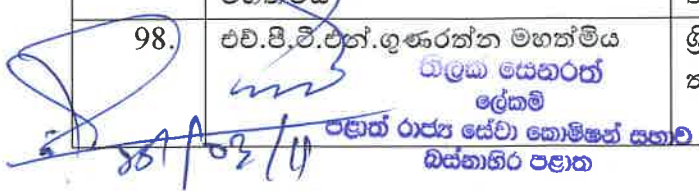 98. එච්.පී.ටී.එන්.ගුණරත්න මහත්මිය
තිලක සෙනරත්
ලේකම්
පළාත් රාජ්‍ය සේවා කොමිෂන් සභාව
බස්නාහිර පළාත